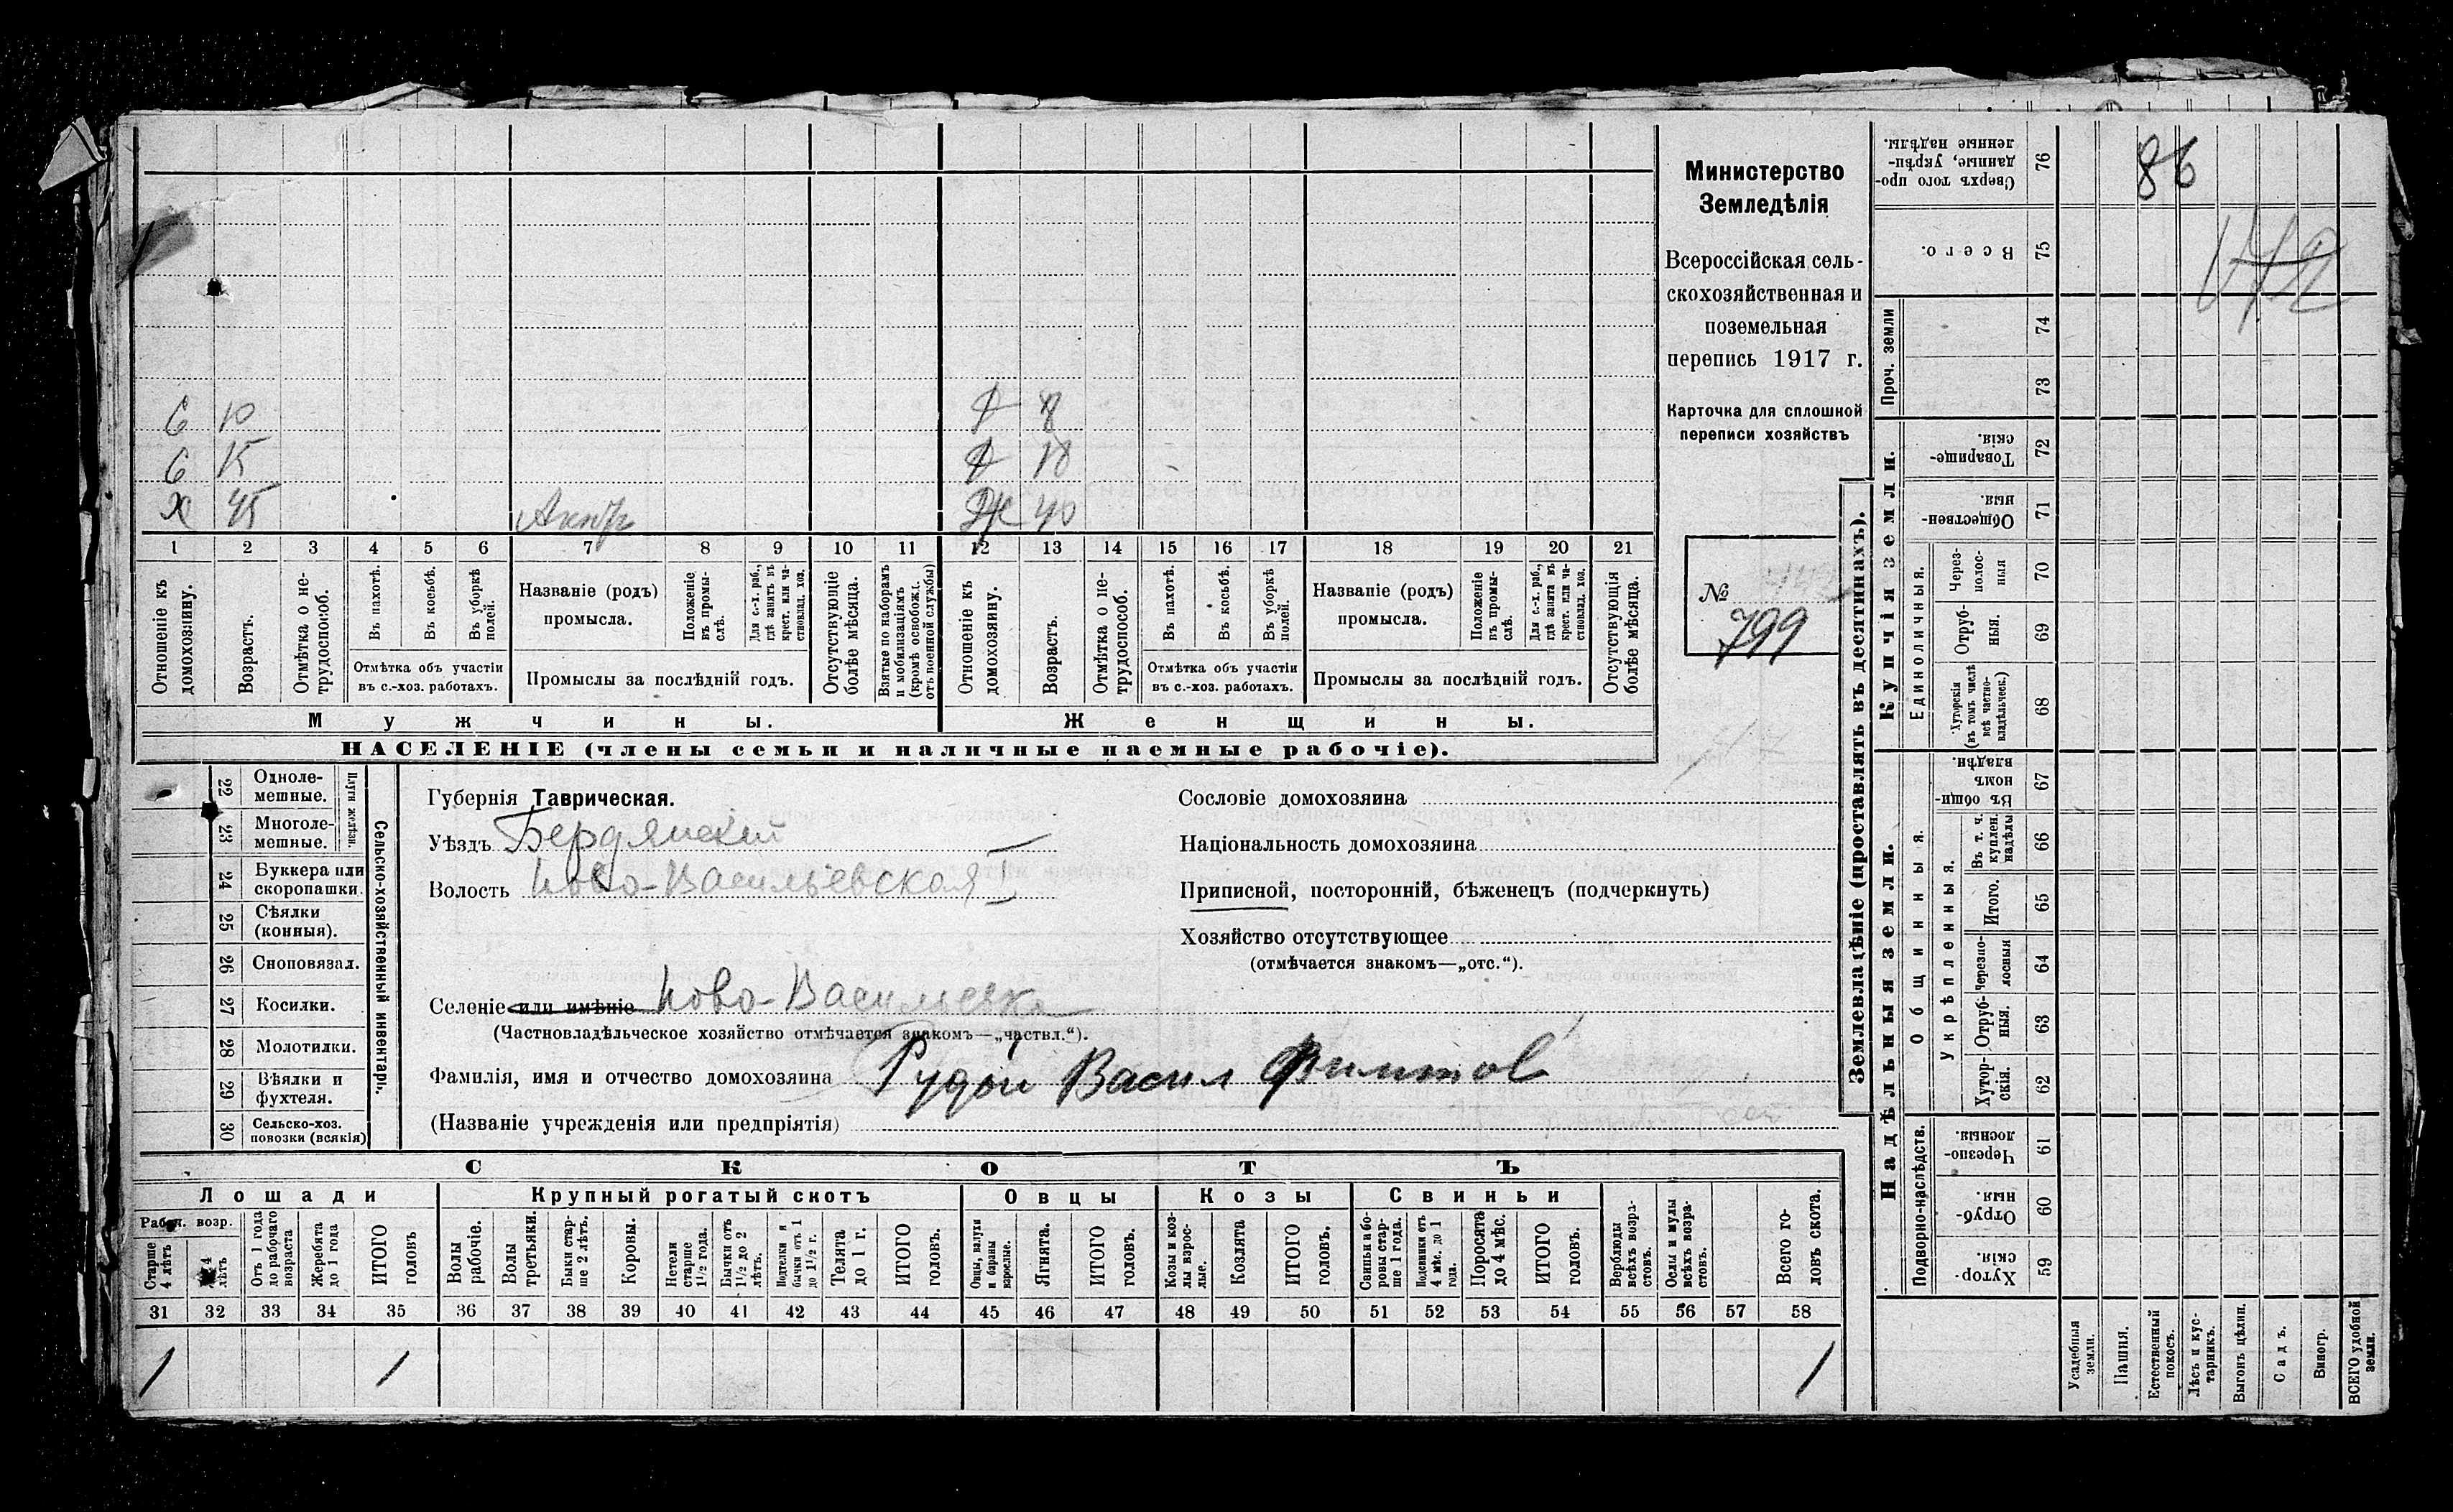 86
Министерство
Земледѣлія
Всероссійская сель-
скохозяйственная и
поземельная
перепись 1917 г.
Карточка для сплошной
переписи хозяйствъ
№
799
С 10 Д 8
С 15 Д 18
Х 45 Ж 40
1 2 3 4 5 6 7 8 9 10 11 12 13 14 15 16 17 18 19 20 21
Отношеніе къ домохозяину.
Возрастъ.
Отмѣтка о не-трудоспособ.
Въ пахотѣ.
Въ косьбѣ.
Въ уборкѣ полей.
Отмѣтка объ участіи
въ с.-хоз. работахъ.
Названіе (родъ)
промысла.
Положеніе въ промы-слѣ.
Для с.-х. раб., гдѣ занятъ въ крест. или ча-стновлад. хоз.
Промыслы за послѣдній годъ.
Отсутствующіе болѣе мѣсяца.
Взятые по наборамъ и мобилизаціямъ (кромѣ освобожд. отъ военной службы)
Отношеніе къ домохозяину.
Возрастъ.
Отмѣтка о не-трудоспособ.
Въ пахотѣ.
Въ косьбѣ.
Въ уборкѣ полей.
Отмѣтка объ участіи
въ с.-хоз. работахъ.
Названіе (родъ)
промысла.
Положеніе въ промы-слѣ.
Для с.-х. раб., гдѣ занята въ крест. или ча-стновлад. хоз.
Промыслы за послѣдній годъ.
Отсутствующія болѣе мѣсяца.
Мужчины.
Женщины.
НАСЕЛЕНІЕ (члены семьи и наличные наемные рабочіе).
22 Одноле-мешные.
23 Многоле-мешные.
Плуги желѣзн.
24 Буккера или скоропашки.
25 Сѣялки (конныя).
26 Сноповязал.
27 Косилки.
28 Молотилки.
29 Вѣялки и фухтеля.
30 Сельско-хоз. повозки (всякія)
Сельско-хозяйственный инвентарь.
Губернія Таврическая.
Уѣздъ Бердянскій
Волость Ново-Васильевская
Селеніе или имѣніе Ново-Васильевка
(Частновладѣльческое хозяйство отмѣчается знакомъ—„частвл.“).
Фамилія, имя и отчество домохозяина Рудой Васил Филипов
(Названіе учрежденія или предпріятія)
Сословіе домохозяина
Національность домохозяина
Приписной, посторонній, бѣженецъ (подчеркнуть)
Хозяйство отсутствующее
(отмѣчается знакомъ—„отс.“).
СКОТЪ
Лошади
Крупный рогатый скотъ
Овцы
Козы
Свиньи
Рабоч. возр.
Старше 4 лѣтъ
4 лѣтъ
Отъ 1 года до рабочаго возраста
Жеребята до 1 года
ИТОГО головъ
Волы рабочіе.
Волы третьяки.
Быки стар-ше 2 лѣтъ.
Коровы.
Нетели старше 1½ года.
Бычки отъ 1½ до 2 лѣтъ.
Подтелки и бычки отъ 1 до 1½ г.
Телята до 1 г.
ИТОГО головъ.
Овцы, валухи и бараны взрослые.
Ягнята.
ИТОГО головъ.
Козы и коз-лы взрос-лые.
Козлята
ИТОГО головъ.
Свиньи и бо-ровы стар-ше 1 года.
Подсвинки отъ 4 мѣс. до 1 года.
Поросята до 4 мѣс.
ИТОГО головъ.
Верблюды всѣхъ возра-стовъ.
Ослы и мулы всѣхъ возра-стовъ.
Всего го-ловъ скота.
31 32 33 34 35 36 37 38 39 40 41 42 43 44 45 46 47 48 49 50 51 52 53 54 55 56 57 58
1 1 1
Землевладѣніе (проставлять въ десятинахъ).
Купчія земли.
Надѣльныя земли.
Сверхъ того про-данные, укрѣп-ленные надѣлы. 76
Всего. 75
Проч. земли 74
73
Товарище-скія. 72
Обществен-ныя. 71
Единоличныя.
Через-полос-ныя 70
Отруб-ныя. 69
Хуторскія (въ томъ числѣ всѣ частно-владѣльческ.) 68
Общинныя.
Въ общи-номъ владѣн. 67
Укрѣпленныя.
Въ т. ч. куплен. надѣлы 66
Итого. 65
Черезпо-лосныя 64
Отруб-ныя. 63
Хутор-скія. 62
Подворно-наслѣдств.
Черезпо-лосныя. 61
Отруб-ныя. 60
Хутор-скія. 59
Усадебныя земли.
Пашня.
Естественный покосъ.
Лѣсъ и кус-тарникъ.
Выгонъ цѣлин.
Садъ.
Виногр.
ВСЕГО удобной земли.